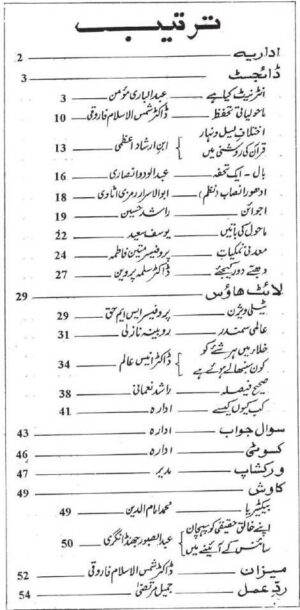 ترتیب
اداریہ 2
ڈائجسٹ 3
انٹرنیٹ کیا ہے عبدالباری مومن 3
ماحولیاتی تحفظ ڈاکٹر شمس الاسلام فاروقی 10
اختلاف لیل و نہار
قرآن کی روشنی میں ابن ارشاد اعظمی 13
بال ۔ ایک تحفہ عبدالودود انصاری 16
ادھورا نصاب (نظم) ابوالاسرار رمزی اٹاوی 18
اجوائن راشد حسین 19
ماحول کی باتیں یوسف سعید 22
معدنی نمکیات پروفیسر متین فاطمہ 24
دھبّے دور کیجئے ڈاکٹر سلمہ پروین 27
لائٹ ھاؤس 29
ٹیلی ویژن پروفیسر ایس ایم حق 29
عالمی سمندر روبینہ نازلی 31
خلاء میں ہر شئے کو
کون سنبھالے ہوئے ہے ڈاکٹر انیس عالم 34
صحیح فیصلہ راشد نعمانی 38
کب کیوں کیسے ادارہ 41
سوال جواب ادارہ 43
کسوٹی ادارہ 46
ورکشاپ مدیر 47
کاوش 49
بیکٹیریا محمد امام الدین 49
اپنے خالق حقیقی کو پہچان
سائنس کے آئینے میں عبدالصبور جھنڈانگری 50
میزان ڈاکٹر شمس الاسلام فاروقی 52
ردِّعمل جمیل مرتضیٰ 54